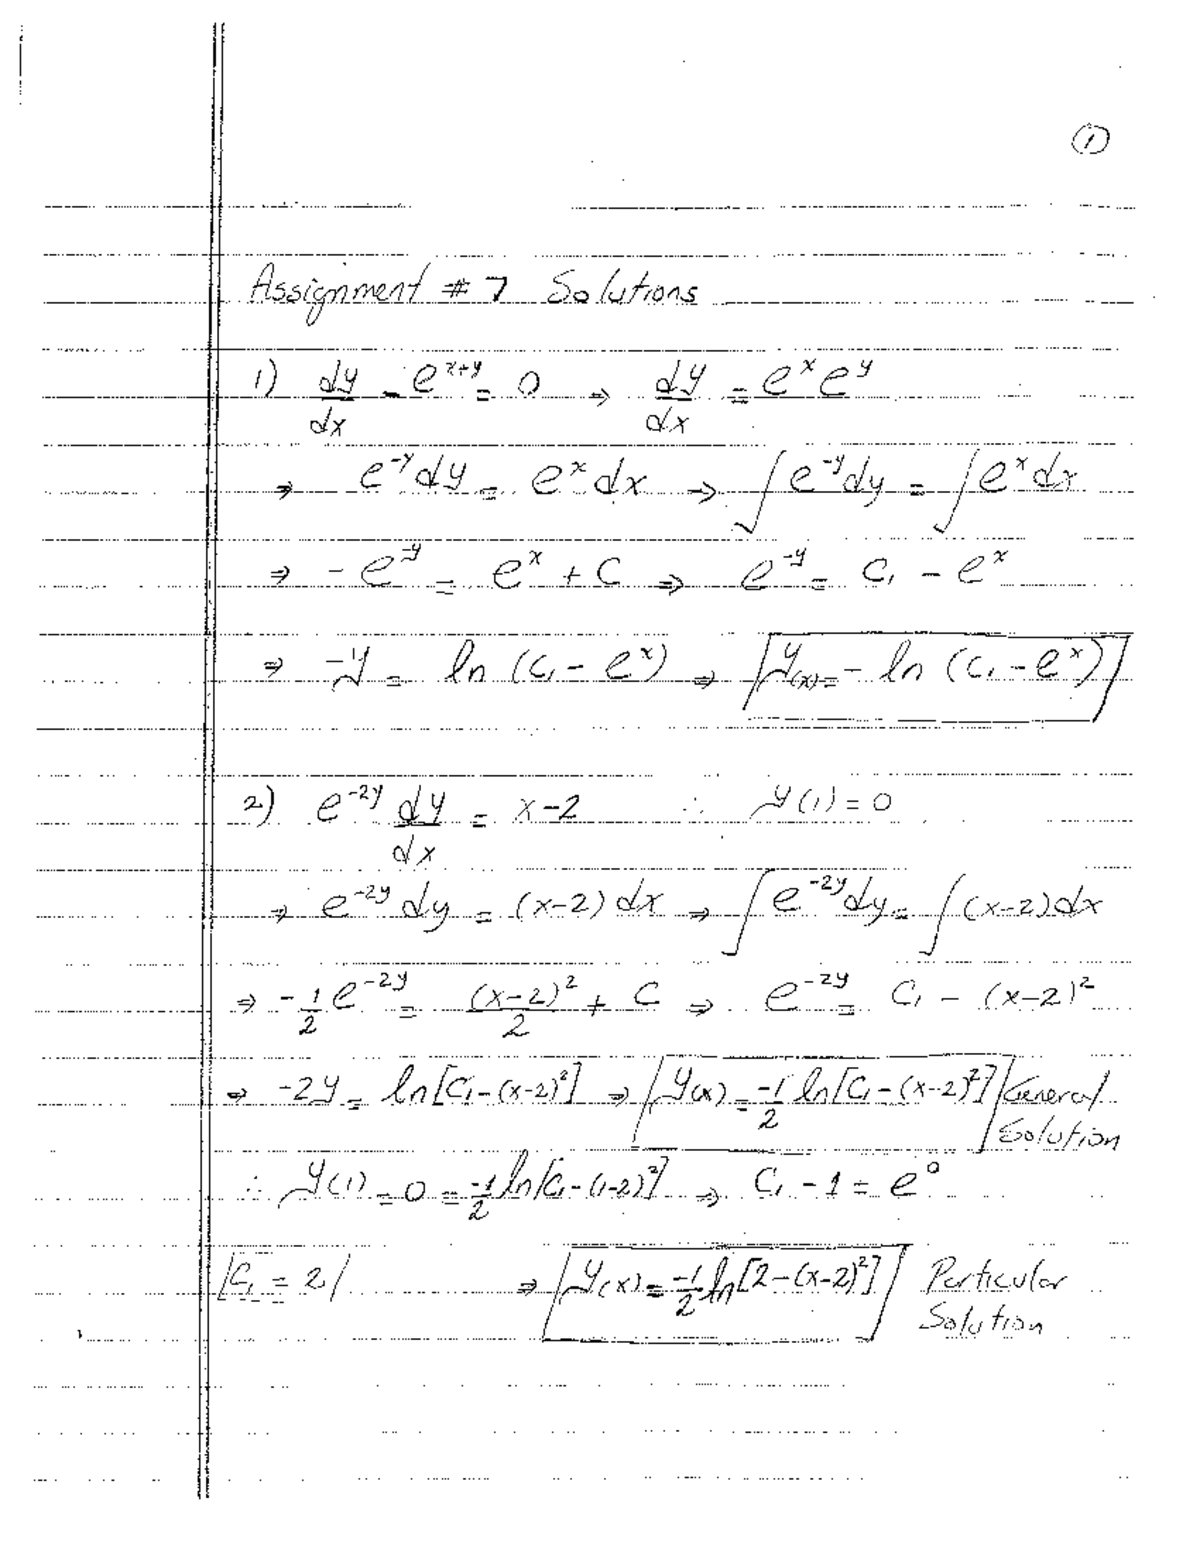 ①
Assignment # 7 Solutions
1) dy/dx - e^(x+y) = 0 ⇒ dy/dx = e^x e^y
⇒ e^(-y) dy = e^x dx ⇒ ∫ e^(-y) dy = ∫ e^x dx
⇒ -e^(-y) = e^x + C ⇒ e^(-y) = C₁ - e^x
⇒ -y = ln (C₁ - e^x) ⇒ y(x) = - ln (C₁ - e^x)
2) e^(-2y) dy/dx = x-2 ∴ y(1) = 0
⇒ e^(-2y) dy = (x-2) dx ⇒ ∫ e^(-2y) dy = ∫ (x-2) dx
⇒ -1/2 e^(-2y) = (x-2)²/2 + C ⇒ e^(-2y) = C₁ - (x-2)²
⇒ -2y = ln[C₁-(x-2)²] ⇒ y(x) = -1/2 ln[C₁-(x-2)²] General
Solution
∴ y(1) = 0 = -1/2 ln[C₁-(1-2)²] ⇒ C₁ - 1 = e⁰
C₁ = 2 ⇒ y(x) = -1/2 ln[2-(x-2)²] Particular
Solution